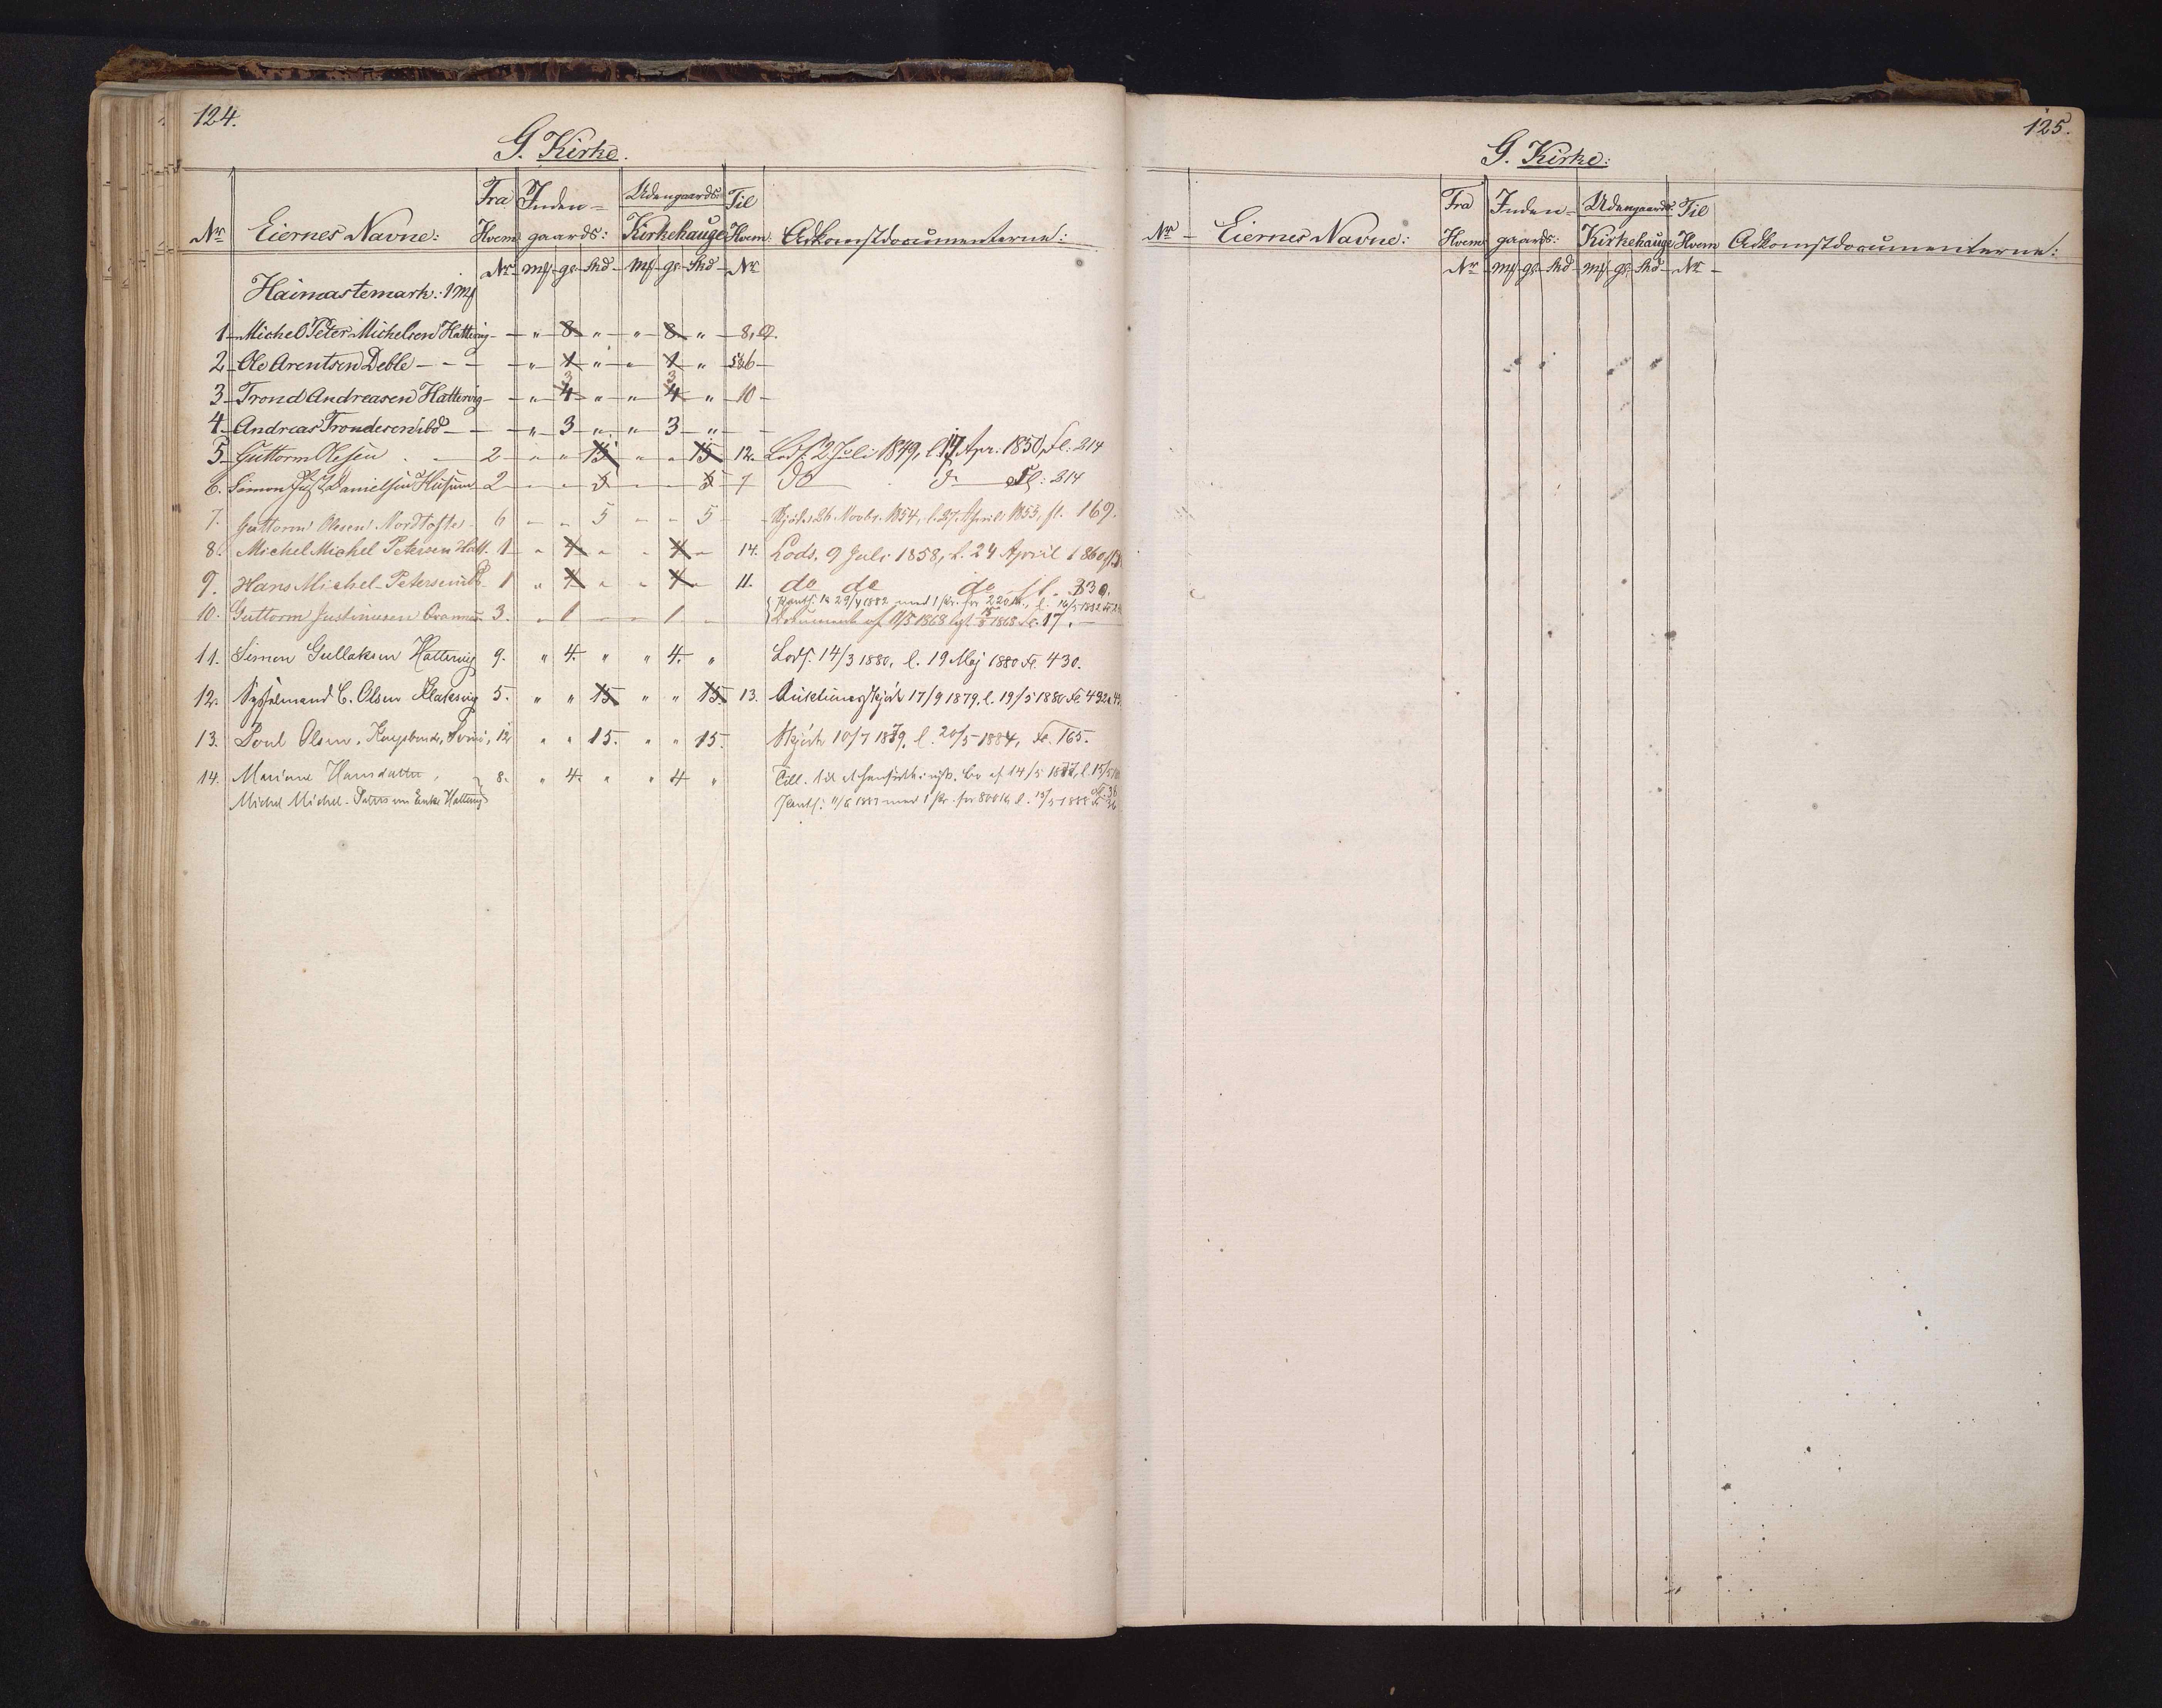 124.
G. Kirke.
Nr Eiernes Navne: Fra Hvem Nr Inden= gaards: mf gr Skd Udengaards Kirkehauge mf gr Skd Til Hvem Nr Adkomstdocumenterne:
Haimastemark: 1 mf
1 Michel Peter Michelsen Hattervig " 8 " " 8 " 8, 9.
2 Ole Arentsen Deble " 1 " " 1 " 5&6
3 3
3 Trond Andreasen Hattervig " 4 " " 4 " 10
4 Andreas Trondesen ibd " 3 " " 3 "
5 Guttorm Olesen 2 " " 15 " " 15 12. Lods. 2 Juli 1849, l. 17 Apr: 1850, Fl: 214
6. Simon Danielsen Husum 2 " " 5 " " 5 7 do do Fl: 214
7. Guttorm Olesen Nordtofte 6 " " 5 " " 5 Skjöde 26 Novbr. 1854, l. 27 April 1855, fl. 169.
8. Michel Michel Petersen Hatt. 1 " 4 " " 4 " 14. Lods. 9 Juli 1858, l. 24 April 1860,
9. Hans Michel-Petersen 1 " 4 " " 4 " 11. do do do fl. 330.
Pantf. 29/4 1882 med 1 Pr. for 220 Kr., l. 16/5 1882
10. Guttorm Justinusen 3. " 1 " " 1 " Document af 11/5 1868 lgt. 1868 Fl. 17.
11. Simon Gullaksen Hattervig 9. " 4. " " 4. " Lods. 14/3 1880, l. 19 Maj 1880 Fl. 430.
12. Sysselmand C. Olsen Klaksvig 5. " " 15 " " 15. 13. Auktionsskjöde 17/9 1879, l. 19/5 1880 Fl. 432
13. Poul Olsen, Kongsbonde, 12 " " 15. " " 15. Skjöde 10/7 1879, l. 20/5 1884, Fl. 165.
14. Mariane Hansdatter, 8. " 4. " " 4 " Till. til at hensidde i uskift. Bo af 14/5 1877, l. 15/5
Michel Michel-Petersens Enke Hattervig Pantf: 11/6 1887 med 1 Pr. for 800 Kr l. 15/5 1888 Fl. 36
125.
G. Kirke:
Nr Eiernes Navne: Fra Hvem Nr Inden= gaards: mf gr Skd Udengaards Kirkehauge mf gr Skd Til Hvem Nr Adkomstdocumenterne: